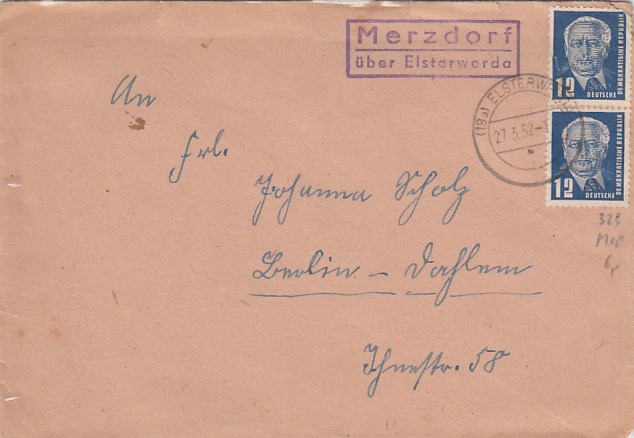 Merzdorf
über Elsterwerda
12
DEUTSCHE
DEMOKRATISCHE REPUBLIK
ELSTERWE
27.3.52-1
12
DEUTSCHE
DEMOKRATISCHE REPUBLIK
An
Frl.
Johanna Scholz
Berlin - Dahlem
Ihnestr. 58
323